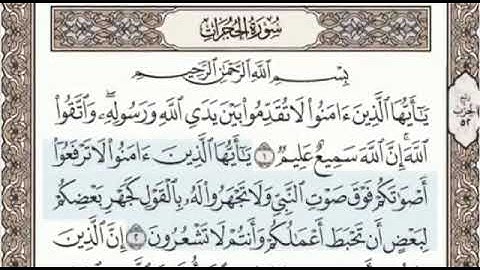 سُورَةُ الْحُجُرَاتِ
بِسْمِ اللَّهِ الرَّحْمَٰنِ الرَّحِيمِ
يَٰٓأَيُّهَا ٱلَّذِينَ ءَامَنُوا۟ لَا تُقَدِّمُوا۟ بَيْنَ يَدَىِ ٱللَّهِ وَرَسُولِهِۦ ۖ وَٱتَّقُوا۟
ٱللَّهَ ۚ إِنَّ ٱللَّهَ سَمِيعٌ عَلِيمٌ ١ يَٰٓأَيُّهَا ٱلَّذِينَ ءَامَنُوا۟ لَا تَرْفَعُوٓا۟
أَصْوَٰتَكُمْ فَوْقَ صَوْتِ ٱلنَّبِىِّ وَلَا تَجْهَرُوا۟ لَهُۥ بِٱلْقَوْلِ كَجَهْرِ بَعْضِكُمْ
لِبَعْضٍ أَن تَحْبَطَ أَعْمَٰلُكُمْ وَأَنتُمْ لَا تَشْعُرُونَ ٢ إِنَّ ٱلَّذِينَ
الحزب
٥٢